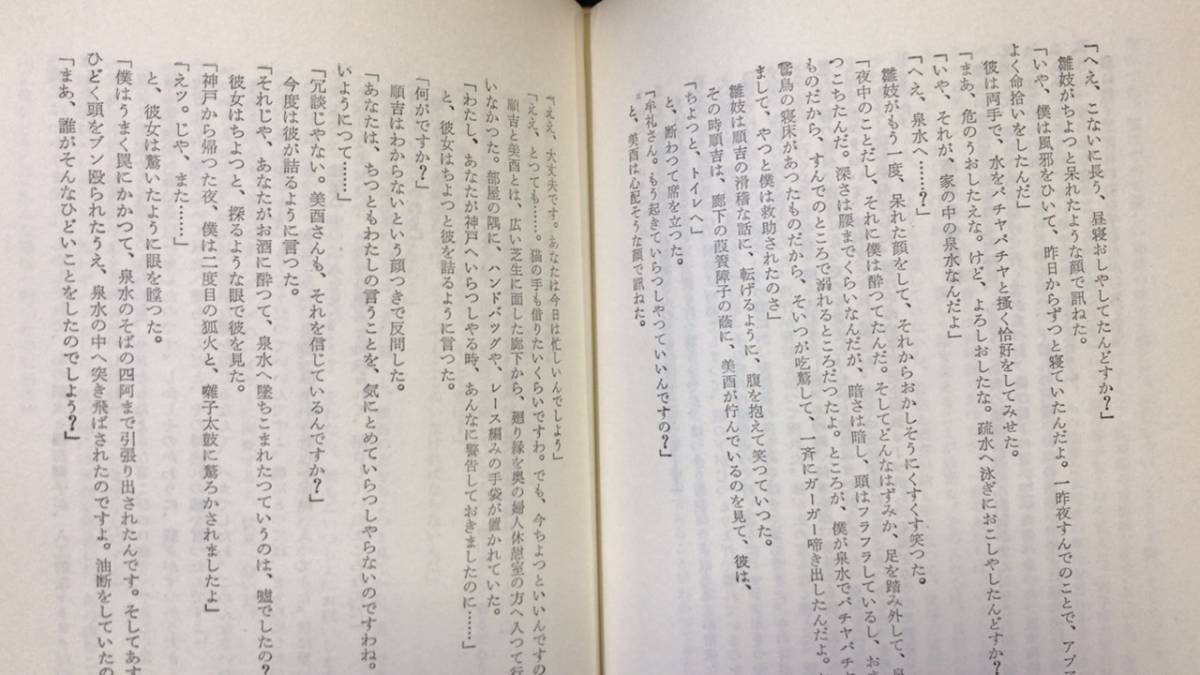 「へえ、こないに長う、昼寝おしやしてたんどすか?」
雛妓がちよつと呆れたような顔で訊ねた。
「いや、僕は風邪をひいて、昨日からずつと寝ていたんだよ。一昨夜すんでのことで、アブ
よく命拾いをしたんだ」
彼は両手で、水をパチヤパチヤと搔く恰好をしてみせた。
「まあ、危のうおしたえな。けど、よろしおしたな。疏水へ泳ぎにおこしやしたんどすか?
「いや、それが、家の中の泉水なんだよ」
「へえ、泉水へ……?」
雛妓がもう一度、呆れた顔をして、それからおかしそうにくすくす笑つた。
「夜中のことだし、それに僕は酔つてたんだ。そしてどんなはずみか、足を踏み外して、泉
つこちたんだ。深さは腰までくらいなんだが、暗さは暗し、頭はフラフラしているし、おま
ものだから、すんでのところで溺れるところだつたよ。ところが、僕が泉水でパチヤパチヤ
鵞鳥の寝床があつたものだから、そいつが吃驚して、一斉にガーガー啼き出したんだよ。
まして、やつと僕は救助されたのさ」
雛妓は順吉の滑稽な話に、転げるように、腹を抱えて笑つていつた。
その時順吉は、廊下の葭簀障子の蔭に、美酉が佇んでいるのを見て、彼は、
「ちよつと、トイレへ」
と、断わつて席を立つた。
「牟礼さん。もう起きていらつしやつていいんですの?」
と、美酉は心配そうな顔で訊ねた。
「ええ、大丈夫です。あなたは今日は忙しいんでしよう」
「ええ、とつても……。猫の手も借りたいくらいですわ。でも、今ちよつといいんですの
順吉と美酉とは、広い芝生に面した廊下から、廻り縁を奥の婦人休憩室の方へ入つて行
いなかつた。部屋の隅に、ハンドバッグや、レース編みの手袋が置かれていた。
「わたし、あなたが神戸へいらつしやる時、あんなに警告しておきましたのに……」
と、彼女はちよつと彼を詰るように言つた。
「何がですか?」
順吉はわからないという顔つきで反問した。
「あなたは、ちつともわたしの言うことを、気にとめていらつしやらないのですわね。
いようにつて……」
「冗談じやない。美酉さんも、それを信じているんですか?」
今度は彼が詰るように言つた。
「それじや、あなたがお酒に酔つて、泉水へ墜ちこまれたつていうのは、嘘でしたの?
彼女はちよつと、探るような眼で彼を見た。
「神戸から帰つた夜、僕は二度目の狐火と、囃子太鼓に驚ろかされましたよ」
「えッ。じや、また……」
と、彼女は驚いたように眼を瞠つた。
「僕はうまく罠にかかつて、泉水のそばの四阿まで引張り出されたんです。そしてあす
ひどく頭をブン殴られたうえ、泉水の中へ突き飛ばされたのですよ。油断をしていたの
「まあ、誰がそんなひどいことをしたのでしよう?」